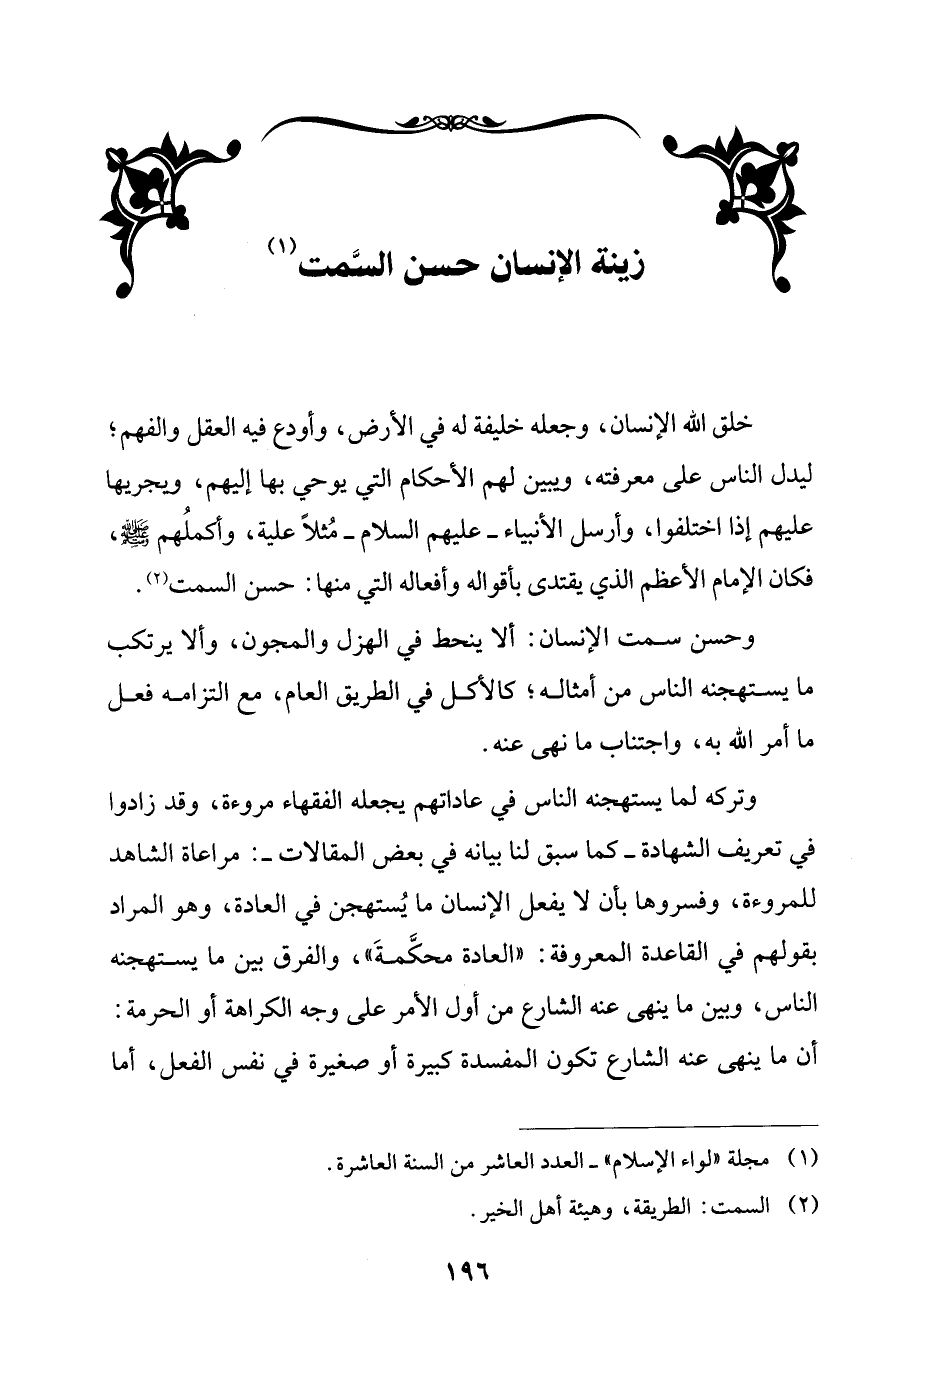 زينة الإنسان حسن السَّمت(١)
خلق الله الإنسان، وجعله خليفة له في الأرض، وأودع فيه العقل والفهم؛
ليدل الناس على معرفته، ويبين لهم الأحكام التي يوحي بها إليهم، ويجريها
عليهم إذا اختلفوا، وأرسل الأنبياء ـ عليهم السلام ـ مُثلاً علية، وأكملُهم ﷺ،
فكان الإمام الأعظم الذي يقتدى بأقواله وأفعاله التي منها: حسن السمت(٢).
وحسن سمت الإنسان: ألا ينحط في الهزل والمجون، وألا يرتكب
ما يستهجنه الناس من أمثاله؛ كالأكل في الطريق العام، مع التزامه فعل
ما أمر الله به، واجتناب ما نهى عنه.
وتركه لما يستهجنه الناس في عاداتهم يجعله الفقهاء مروءة، وقد زادوا
في تعريف الشهادة ـ كما سبق لنا بيانه في بعض المقالات ـ: مراعاة الشاهد
للمروءة، وفسروها بأن لا يفعل الإنسان ما يُستهجن في العادة، وهو المراد
بقولهم في القاعدة المعروفة: «العادة محكَّمةَ»، والفرق بين ما يستهجنه
الناس، وبين ما ينهى عنه الشارع من أول الأمر على وجه الكراهة أو الحرمة:
أن ما ينهى عنه الشارع تكون المفسدة كبيرة أو صغيرة في نفس الفعل، أما
(١) مجلة «لواء الإسلام» ـ العدد العاشر من السنة العاشرة.
(٢) السمت: الطريقة، وهيئة أهل الخير.
١٩٦